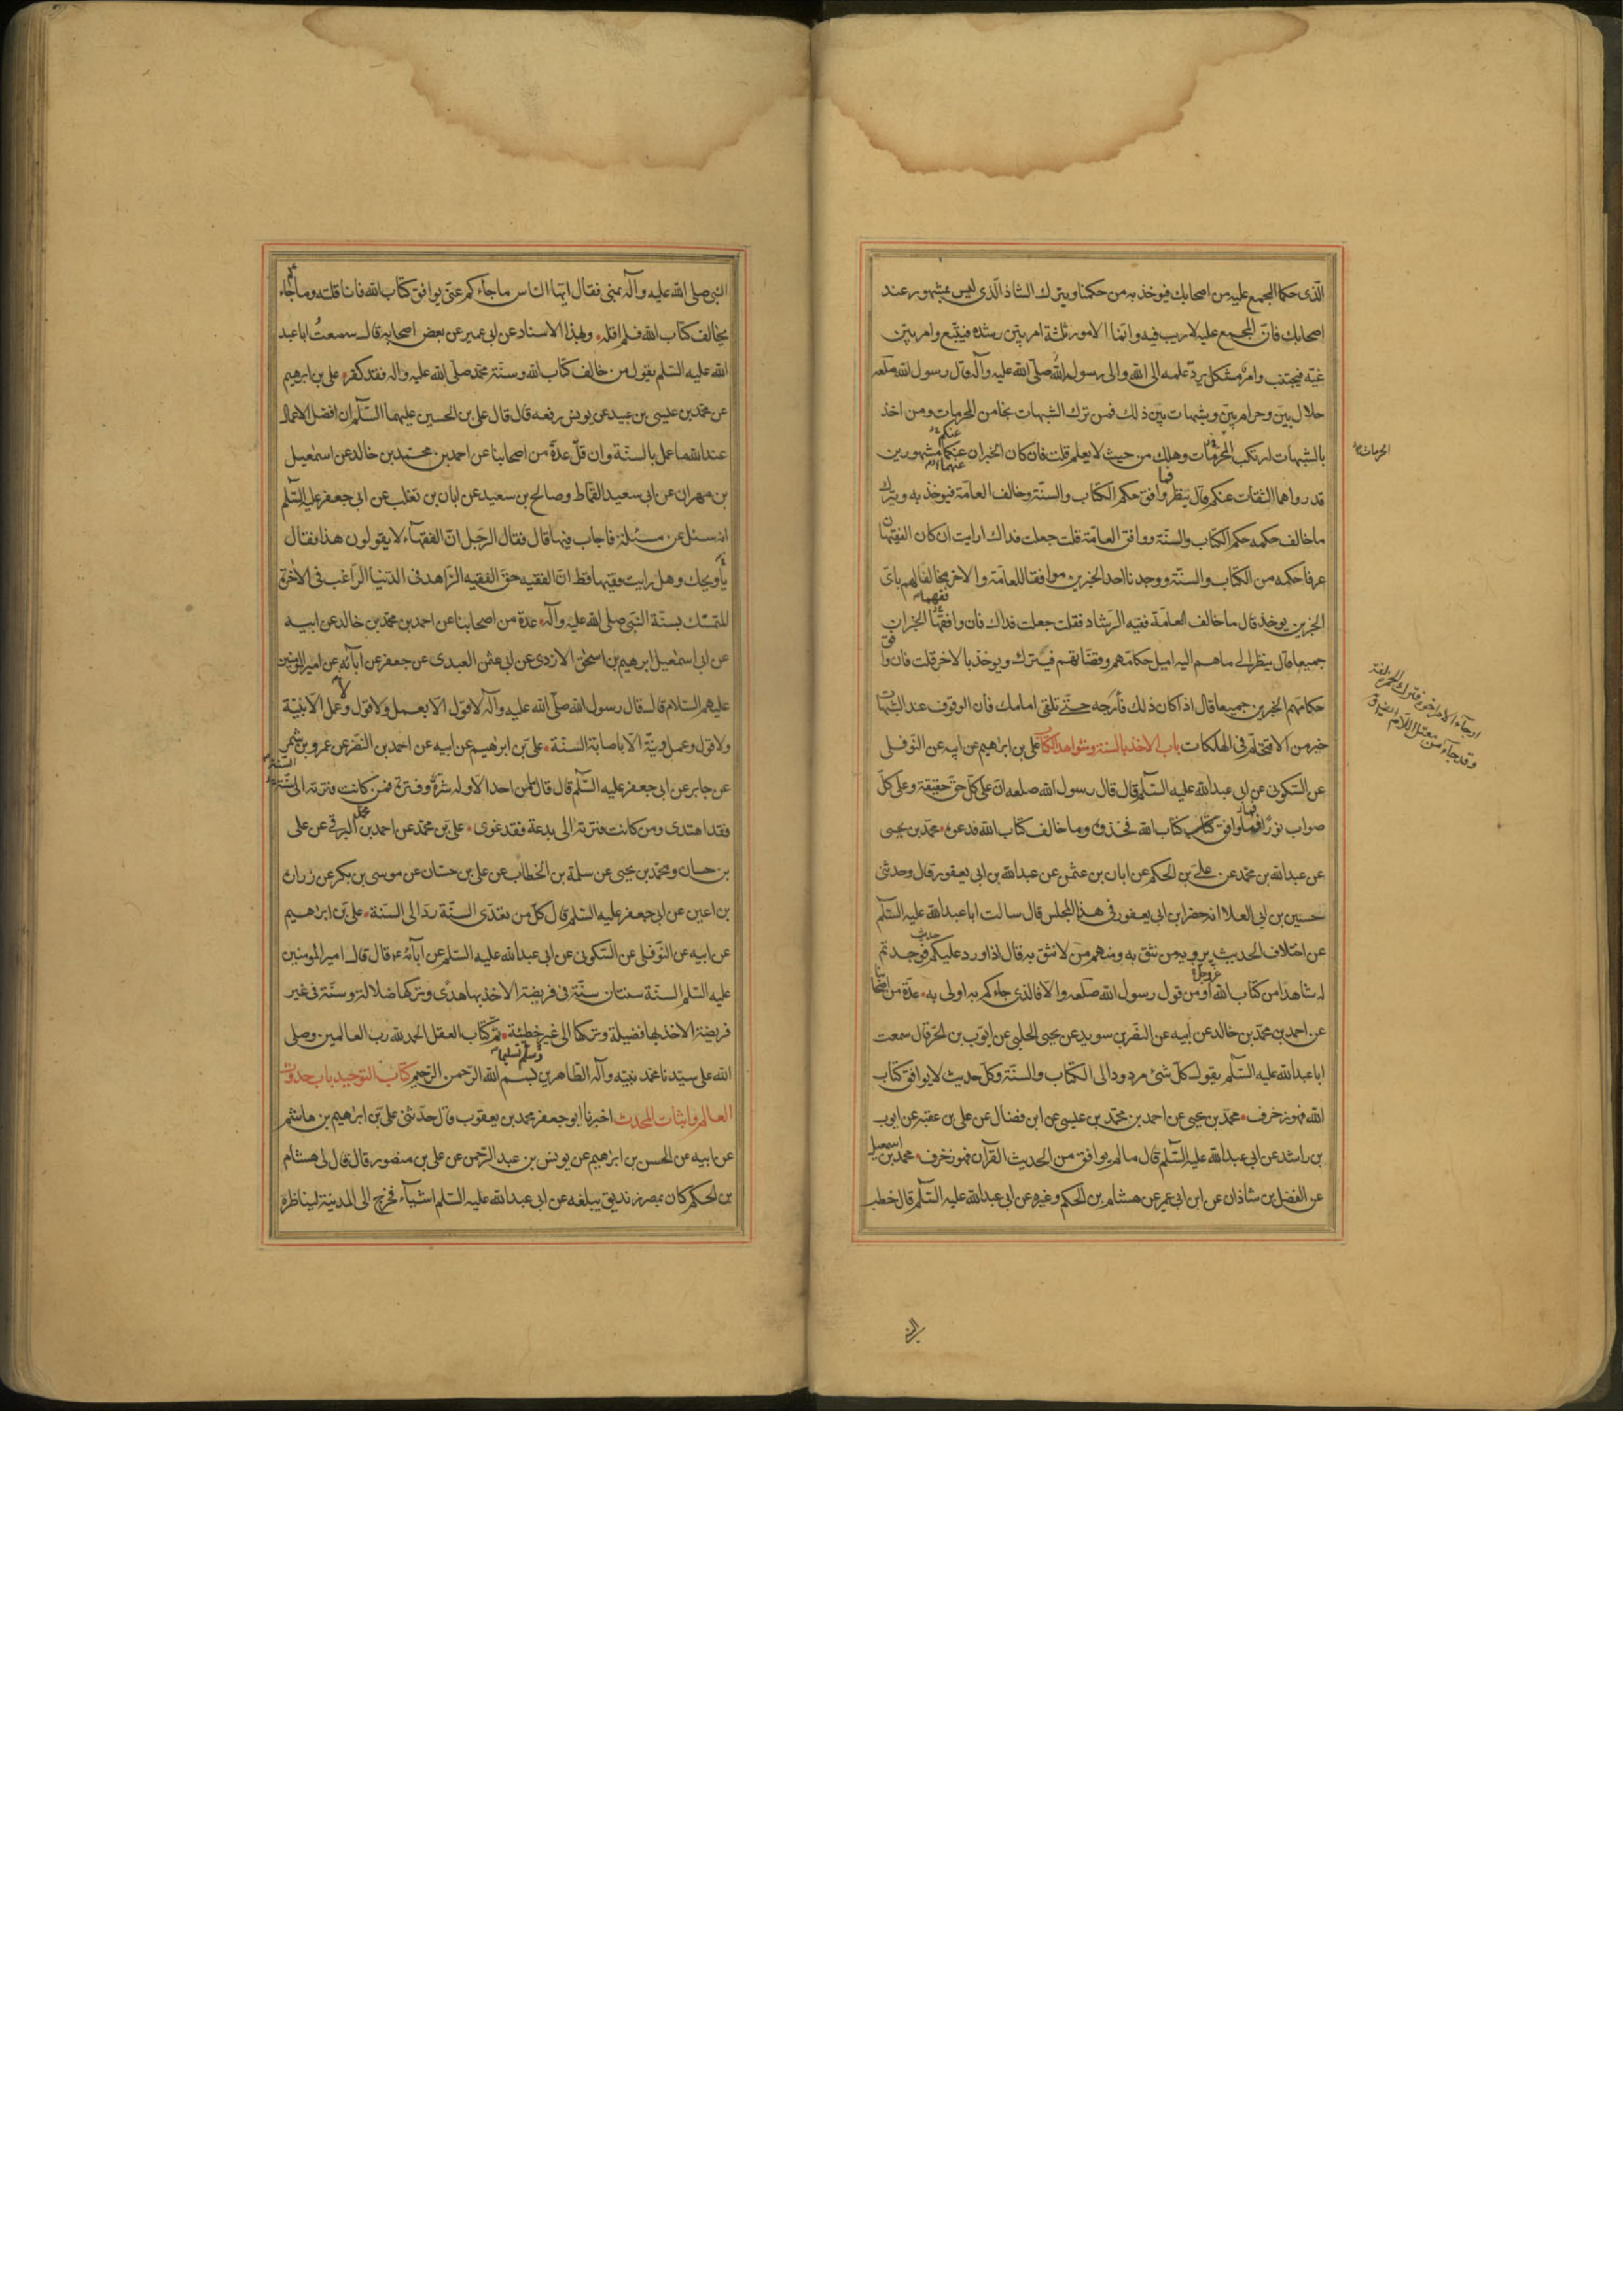 الّذى حكما المجمع عليه من اصحابك فيوخذ به من حكمنا ويترك الشاذ الّذى ليس بمشهور عند
اصحابك فانّ المجمع عليه لا ريب فيه وانّما الامور ثلثة امر بيّن رشده فيتّبع وامر بيّن
غيّه فيجتنب وامر مشكل يردّ علمه الى الله والى رسوله قال رسول الله صلّى الله عليه وآله
حلال بيّن وحرام بيّن وشبهات بين ذلك فمن ترك الشبهات نجا من المحرمات ومن اخذ
بالشبهات ارتكب المحرمات وهلك من حيث لا يعلم قلت فان كان الخبران عنكما مشهورين
قد رواهما الثقات عنكم قال ينظر فما وافق حكمه حكم الكتاب والسنّة وخالف العامّة فيوخذ به ويترك
ما خالف حكمه حكم الكتاب والسنّة ووافق العامّة قلت جعلت فداك ارايت ان كان الفقيهان
عرفا حكمه من الكتاب والسنّة ووجدنا احد الخبرين موافقا للعامّة والاخر مخالفا لهم باىّ
الخبرين يوخذ قال ما خالف العامّة ففيه الرشاد فقلت جعلت فداك فان وافقها الخبران
جميعا قال ينظر الى ما هم اليه اميل حكامهم وقضاتهم فيترك ويوخذ بالاخر قلت فان وافق
حكامهم الخبرين جميعا قال اذا كان ذلك فارجه حتّى تلقى امامك فان الوقوف عند الشبهات
خير من الاقتحام فى الهلكات باب الاخذ بالسنة وشواهد الكتاب على بن ابراهيم عن ابيه عن النوفلى
عن السّكونى عن ابى عبد الله عليه السّلم قال قال رسول الله صلعه ان على كلّ حقّ حقيقة وعلى كلّ
صواب نورًا فما وافق كتاب الله فخذوه وما خالف كتاب الله فدعوه محمّد بن يحيى
عن عبد الله بن محمّد عن علىّ بن الحكم عن ابان بن عثمن عن عبد الله بن ابى يعفور قال وحدثنى
حسين بن ابى العلا انه حضر ابن ابى يعفور فى هذا المجلس قال سالت ابا عبد الله عليه السّلم
عن اختلاف الحديث يرويه من نثق به ومنهم من لا نثق به قال اذا ورد عليكم حديث فوجدتم
له شاهدا من كتاب الله عزوجل او من قول رسول الله صلعه والا فالذى جاءكم به اولى به عدّة من اصحابنا
عن احمد بن محمّد بن خالد عن ابيه عن النضر بن سويد عن يحيى الحلبى عن ايّوب بن الحرّ قال سمعت
ابا عبد الله عليه السّلم يقول كلّ شئ مردود الى الكتاب والسنّة وكلّ حديث لا يوافق كتاب
الله فهو زخرف محمّد بن يحيى عن احمد بن محمّد بن عيسى عن ابن فضال عن على بن عقبة عن ايوب
بن راشد عن ابى عبد الله عليه السّلم قال ما لم يوافق من الحديث القرآن فهو زخرف محمد بن اسمعيل
عن الفضل بن شاذان عن ابن ابى عمير عن هشام بن الحكم وغيره عن ابى عبد الله عليه السّلم قال خطب
النبى
النبى صلى الله عليه وآله بمنى فقال ايّها الناس ما جآءكم عنّى يوافق كتاب الله فانا قلته وما جاءكم
يخالف كتاب الله فلم اقله وبهذا الاسناد عن ابى عمير عن بعض اصحابه قال سمعتُ ابا عبد
الله عليه السّلم يقول من خالف كتاب الله وسنّة محمّد صلّى الله عليه واله فقد كفر على بن ابرهيم
عن محمّد بن عيسى بن عبيد عن يونس رفعه قال قال على بن الحسين عليهما السّلم ان افضل الاعمال
عند الله ما عمل بالسنّة وان قلّ عدّة من اصحابنا عن احمد بن محمّد بن خالد عن اسمعيل
بن مهران عن ابى سعيد القماط وصالح بن سعيد عن ابان بن تغلب عن ابى جعفر عليه السّلم
انه سئل عن مسئلة فاجاب فيها قال فقال الرّجل انّ الفقهآء لا يقولون هذا فقال
يا ويحك وهل رايت فقيها قط انّ الفقيه حقّ الفقيه الزّاهد فى الدّنيا الرّاغب فى الاخرة
المتمسّك بسنّة النّبى صلى الله عليه وآله عدة من اصحابنا عن احمد بن محمّد بن خالد عن ابيه
عن ابى اسمعيل ابرهيم بن اسحق الازدى عن ابى عثمن العبدى عن جعفر عن آبآئه عن امير المؤمنين
عليهم السّلام قال قال رسول الله صلّى الله عليه وآله لا قول الّا بعمل ولا قول ولا عمل الّا بنيّة
ولا قول وعمل ونيّة الّا باصابة السنّة علىّ بن ابرهيم عن ابيه عن احمد بن النضر عن عمرو بن شمر
عن جابر عن ابى جعفر عليه السّلم قال قال ما من احد الّا وله شرّة وفترة فمن كانت فترته الى السنّة
فقد اهتدى ومن كانت فترته الى بدعة فقد غوى علىّ بن محمّد عن احمد بن محمد البرقى عن على
بن حسان ومحمّد بن يحيى عن سلمة بن الخطاب عن على بن حسّان عن موسى بن بكر عن زرارة
بن اعين عن ابى جعفر عليه السّلم قال كلّ من تعدّى السنّة ردّ الى السّنة علىّ بن ابرهيم
عن ابيه عن النّوفلى عن السّكونى عن ابى عبد الله عليه السّلم عن آبآئه ع قال قال امير المؤمنين
عليه السّلم السنّة سنتان سنّة فى فريضة الاخذ بها هدى وتركها ضلالة وسنّة فى غير
فريضة الاخذ بها فضيلة وتركها الى غير خطيئة تمّ كتاب العقل الحمد لله رب العالمين وصلى
الله على سيّدنا محمّد نبيّه وآله الطّاهرين وسلّم تسليما بسم الله الرّحمن الرّحيم كتاب التوحيد باب حدوث
العالم واثبات المحدث اخبرنا ابو جعفر محمد بن يعقوب قال حدّثنى علىّ بن ابراهيم بن هاشم
عن ابيه عن الحسن بن ابراهيم عن يونس بن عبد الرّحمن عن على بن منصور قال قال لى هشام
بن الحكم كان بمصر زنديق يبلغه عن ابى عبد الله عليه السّلم اشيآء فخرج الى المدينة ليناظره